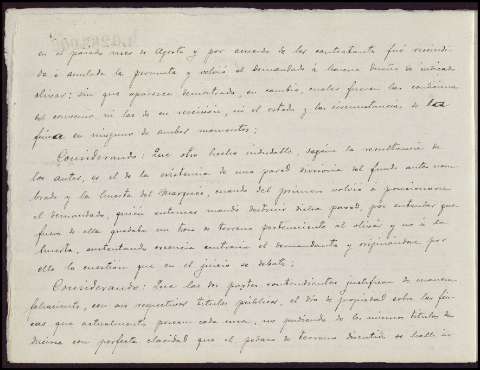 en el pasado mes de Agosto y por acuerdo de los contratantes fué rescindi-
da ó anulada la permuta y volvió el demandado á hacerse dueño de indicado
olivar; sin que aparezca demostrado, en cambio, cuales fueron las condiciones
del convenio ni las de su rescisión, ni el estado y las circunstancias de la
finca en ninguno de ambos momentos;
Considerando: Que otro hecho indudable, según la resultancia de
los autos, es el de la existencia de una pared divisoria del fundo antes nom-
brado y la huerta del Marqués, cuando del primero volvió á posesionarse
el demandado, quien entonces mandó destruir dicha pared, por entender que
fuera de ella quedaba un trozo de terreno perteneciente al olivar y no á la
huerta, sustentando creencia contraria el demandante y originándose por
ello la cuestion que en el juicio se debate;
Considerando: Que las dos partes contendientes justifican de manera
fehaciente, con sus respectivos títulos públicos, el dro de propiedad sobre las fin-
cas que actualmente poseen cada una, no pudiendo de los mismos títulos de-
ducirse con perfecta claridad que el pedazo de terreno discutido se halle in-